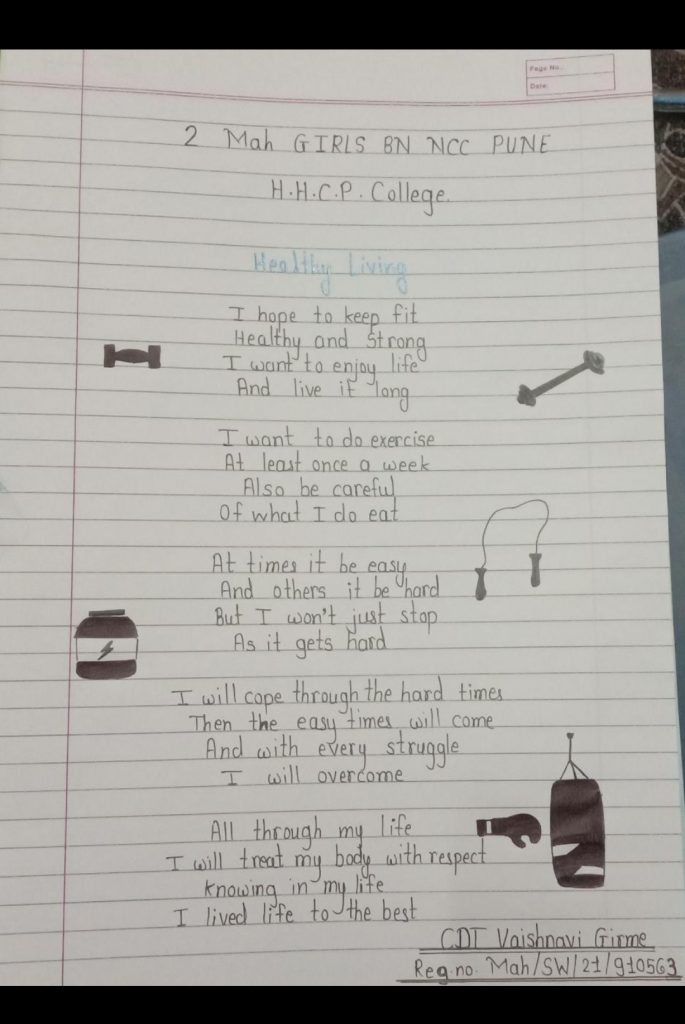 Page No.:
Date:
2 Mah GIRLS BN NCC PUNE
H.H.C.P. College.
Healthy Living
I hope to keep fit
Healthy and Strong
I want to enjoy life
And live it long
I want to do exercise
At least once a week
Also be careful
Of what I do eat
At times it be easy
And others it be hard
But I won't just stop
As it gets hard
I will cope through the hard times
Then the easy times will come
And with every struggle
I will overcome
All through my life
I will treat my body with respect
Knowing in my life
I lived life to the best
CDT Vaishnavi Girme
Reg.no. Mah/SW/21/910563